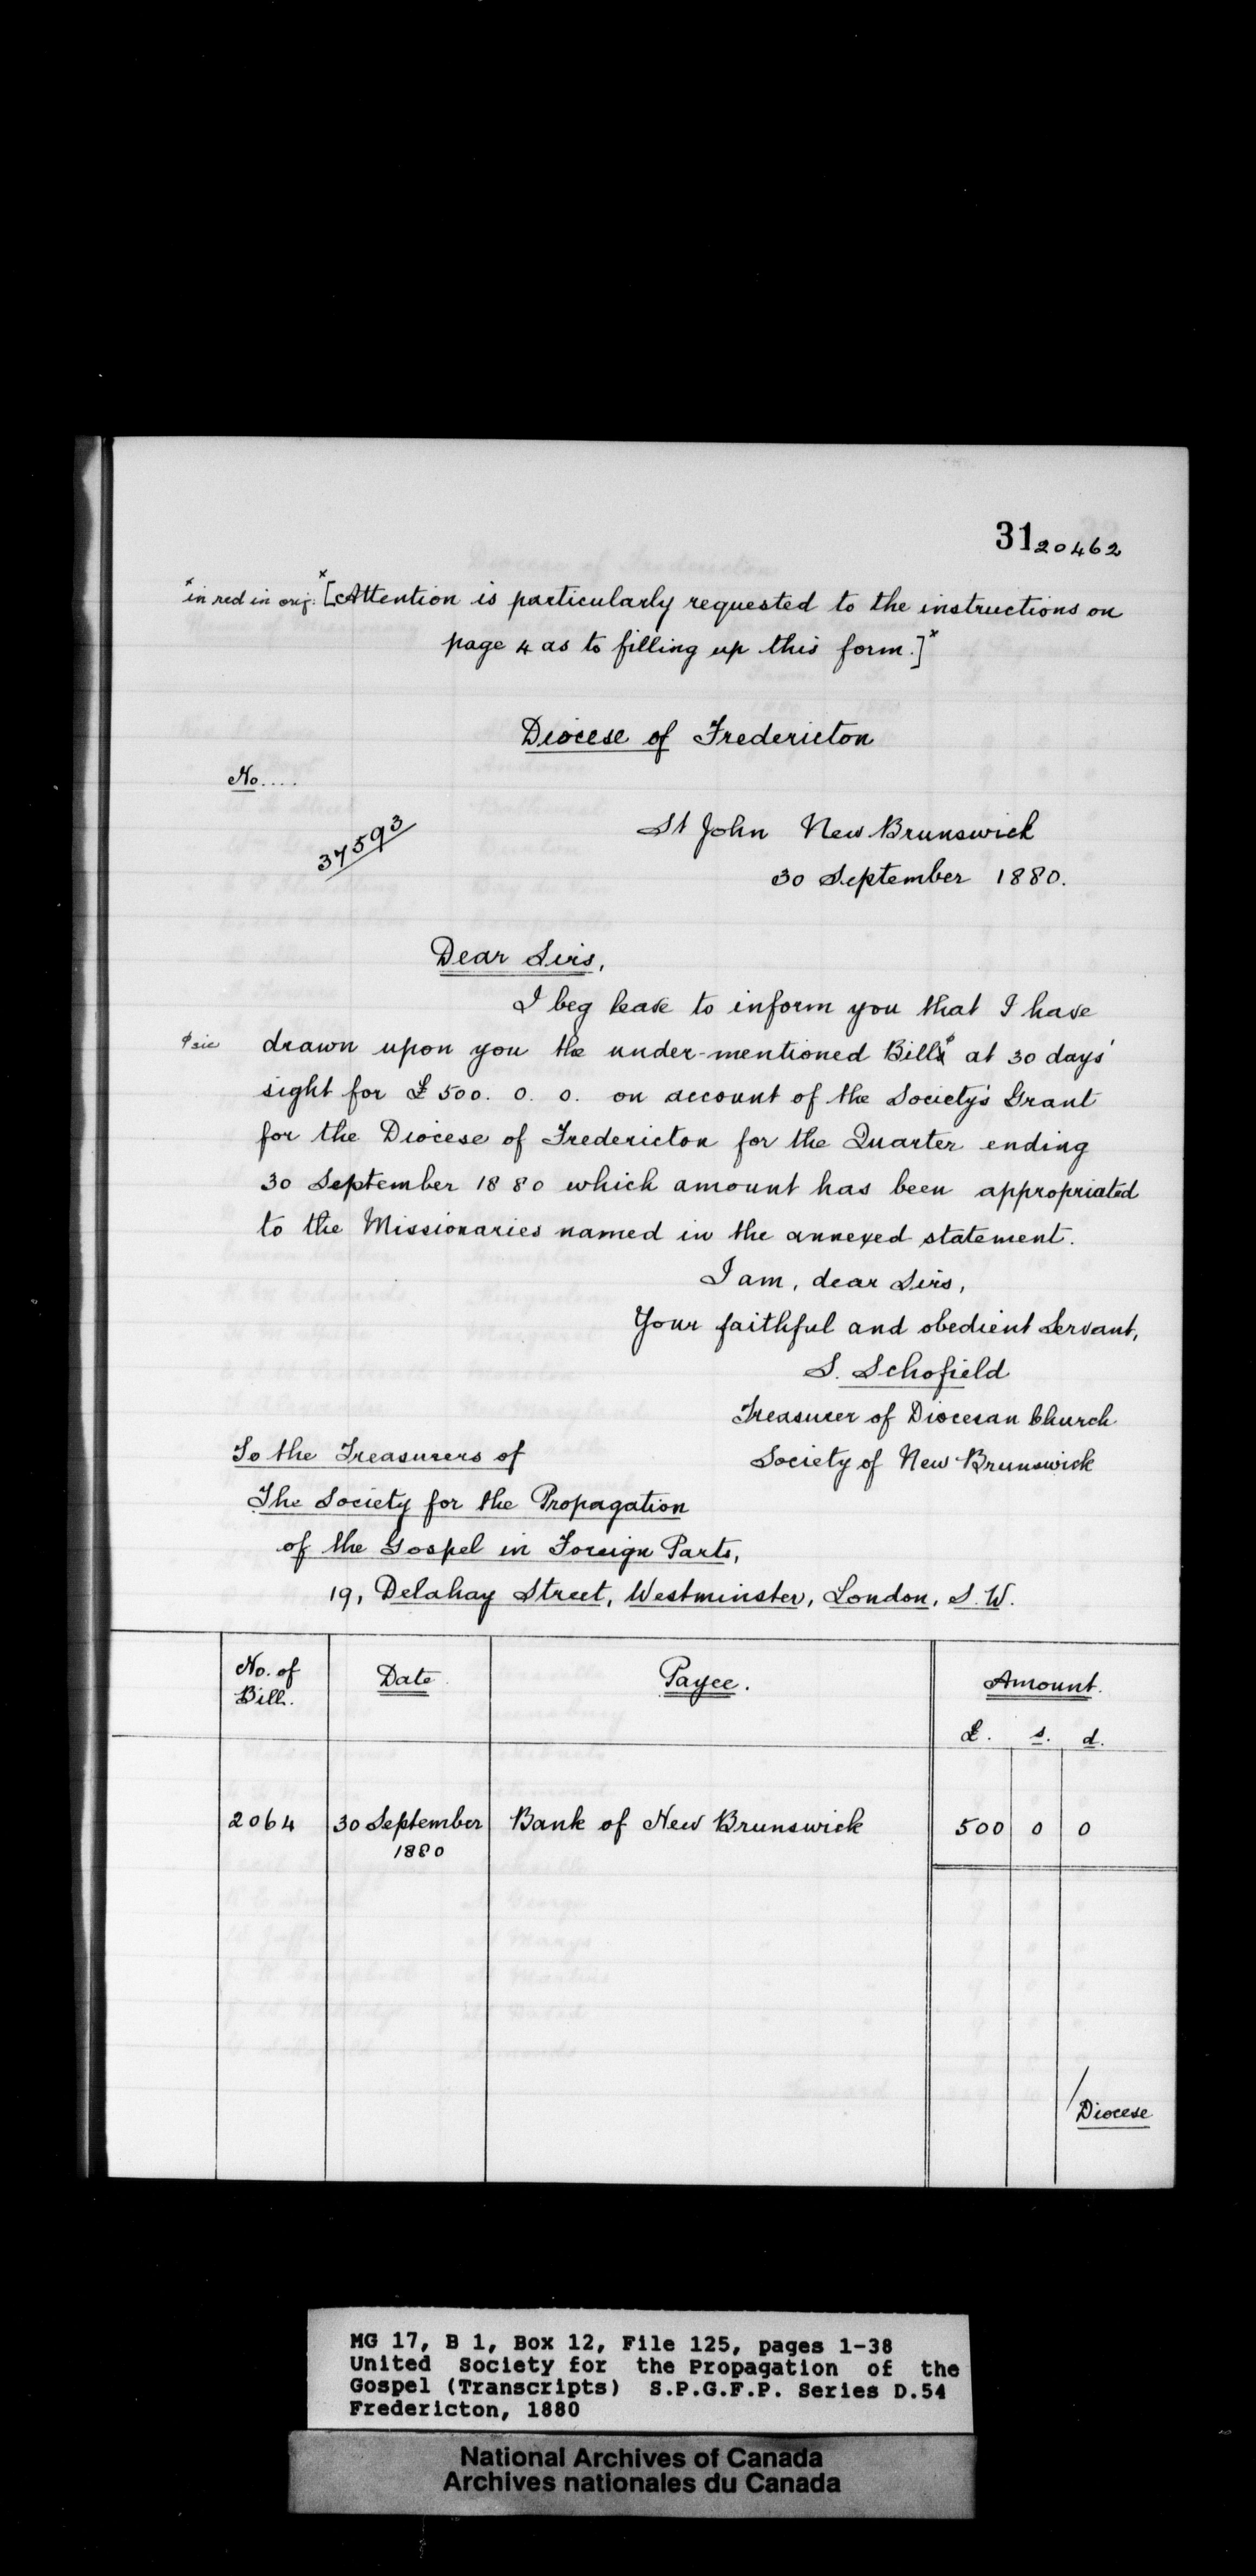 31 20462
*in red in orig. *[Attention is particularly requested to the instructions on
page 4 as to filling up this form.]*
Diocese of Fredericton
No....
37593
St John New Brunswick
30 September 1880.
Dear Sirs,
I beg leave to inform you that I have
sic drawn upon you the under-mentioned Bills at 30 days'
sight for £500. 0. 0. on account of the Society's Grant
for the Diocese of Fredericton for the Quarter ending
30 September 1880 which amount has been appropriated
to the Missionaries named in the annexed statement.
I am, dear Sirs,
Your faithful and obedient Servant,
S. Schofield
Treasurer of Diocesan Church
Society of New Brunswick
To the Treasurers of
The Society for the Propagation
of the Gospel in Foreign Parts,
19, Delahay Street, Westminster, London, S.W.
No. of Bill. Date Payee. Amount.
£. s. d.
2064 30 September Bank of New Brunswick 500 0 0
1880
/Diocese
MG 17, B 1, Box 12, File 125, pages 1-38
United Society for the Propagation of the
Gospel (Transcripts) S.P.G.F.P. Series D.54
Fredericton, 1880
National Archives of Canada
Archives nationales du Canada